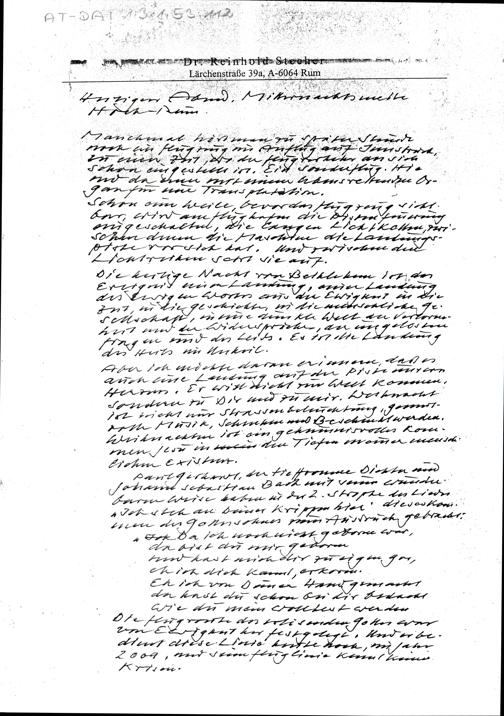 AT-DAT 131 53 112
Dr. Reinhold Stecher
Lärchenstraße 39a, A-6064 Rum
Heiliger Abend. Mitternachtsmette
Hoch-Rum.
Manchmal hört man zu später Stunde
noch ein Flugzeug im Anflug auf Innsbruck,
zu einer Zeit, wo der Flugverkehr an sich
schon eingestellt ist. Ein Sonderflug. Hie
und da einer mit einem lebensrettenden Or-
gan für eine Transplantation.
Schon eine Weile, bevor das Flugzeug sicht-
bar, wird am Flughafen die
eingeschaltet, die langen Lichtketten, zwi-
schen denen die Maschine die Landungs-
piste vor sich hat. Und zwischen den
Lichtreihen setzt sie auf.
Die heilige Nacht von Bethlehem ist das
Ereignis einer Landung, einer Landung
des ewigen Wortes aus der Ewigkeit in die
Zeit, in die Geschichte, in die menschliche Ge-
sellschaft, in eine dunkle Welt der Verloren-
heit und der Widersprüche, der ungelösten
Fragen und des Leids. Es ist die Landung
des Heils im Unheil.
Aber ich möchte daran erinnern, dass es
auch eine Landung auf der Piste unseres
Herzens. Er will nicht zur Welt kommen,
sondern zu Dir und zu mir. Weihnacht
ist nicht nur Strassenbeleuchtung,
volle Musik, Schenken und Beschenktwerden.
Weihnachten ist ein geheimnisvolles Kom-
men Jesu in die Tiefen meiner mensch-
lichen Existenz.
Paul Gerhardt, der tieffromme Dichter und
Johann Sebastian Bach mit seiner wunder-
baren Weise haben in der 2. Strophe des Liedes
"Ich steh an deiner Krippe hier" dieses Kom-
men des Gottessohnes zum Ausdruck gebracht:
"Da ich noch nicht geboren war,
da bist du mir geboren
und hast mich dir zu eigen gar,
eh ich dich kannt, erkoren.
Eh ich von Deiner Hand gemacht
da hast du schon bei dir bedacht
wie du mein wolltest werden
Die Flugroute des erlösenden Gottes war
von Ewigkeit her festgelegt. Und er be-
dient diese Linie heute noch, im Jahr
2009, und seine Fluglinie kennt keine
Krisen.